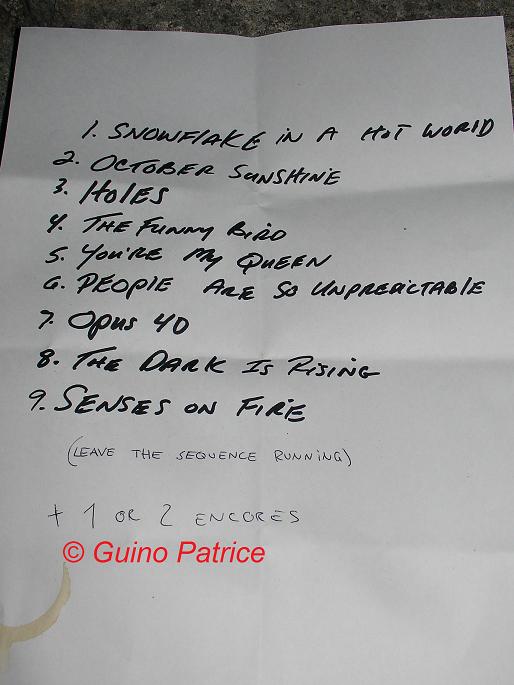 1. SNOWFLAKE IN A HOT WORLD
2. OCTOBER SUNSHINE
3. HOLES
4. THE FUNNY BIRD
5. YOU'RE MY QUEEN
6. PEOPLE ARE SO UNPREDICTABLE
7. OPUS 40
8. THE DARK IS RISING
9. SENSES ON FIRE
(LEAVE THE SEQUENCE RUNNING)
+ 1 OR 2 ENCORES
© Guino Patrice